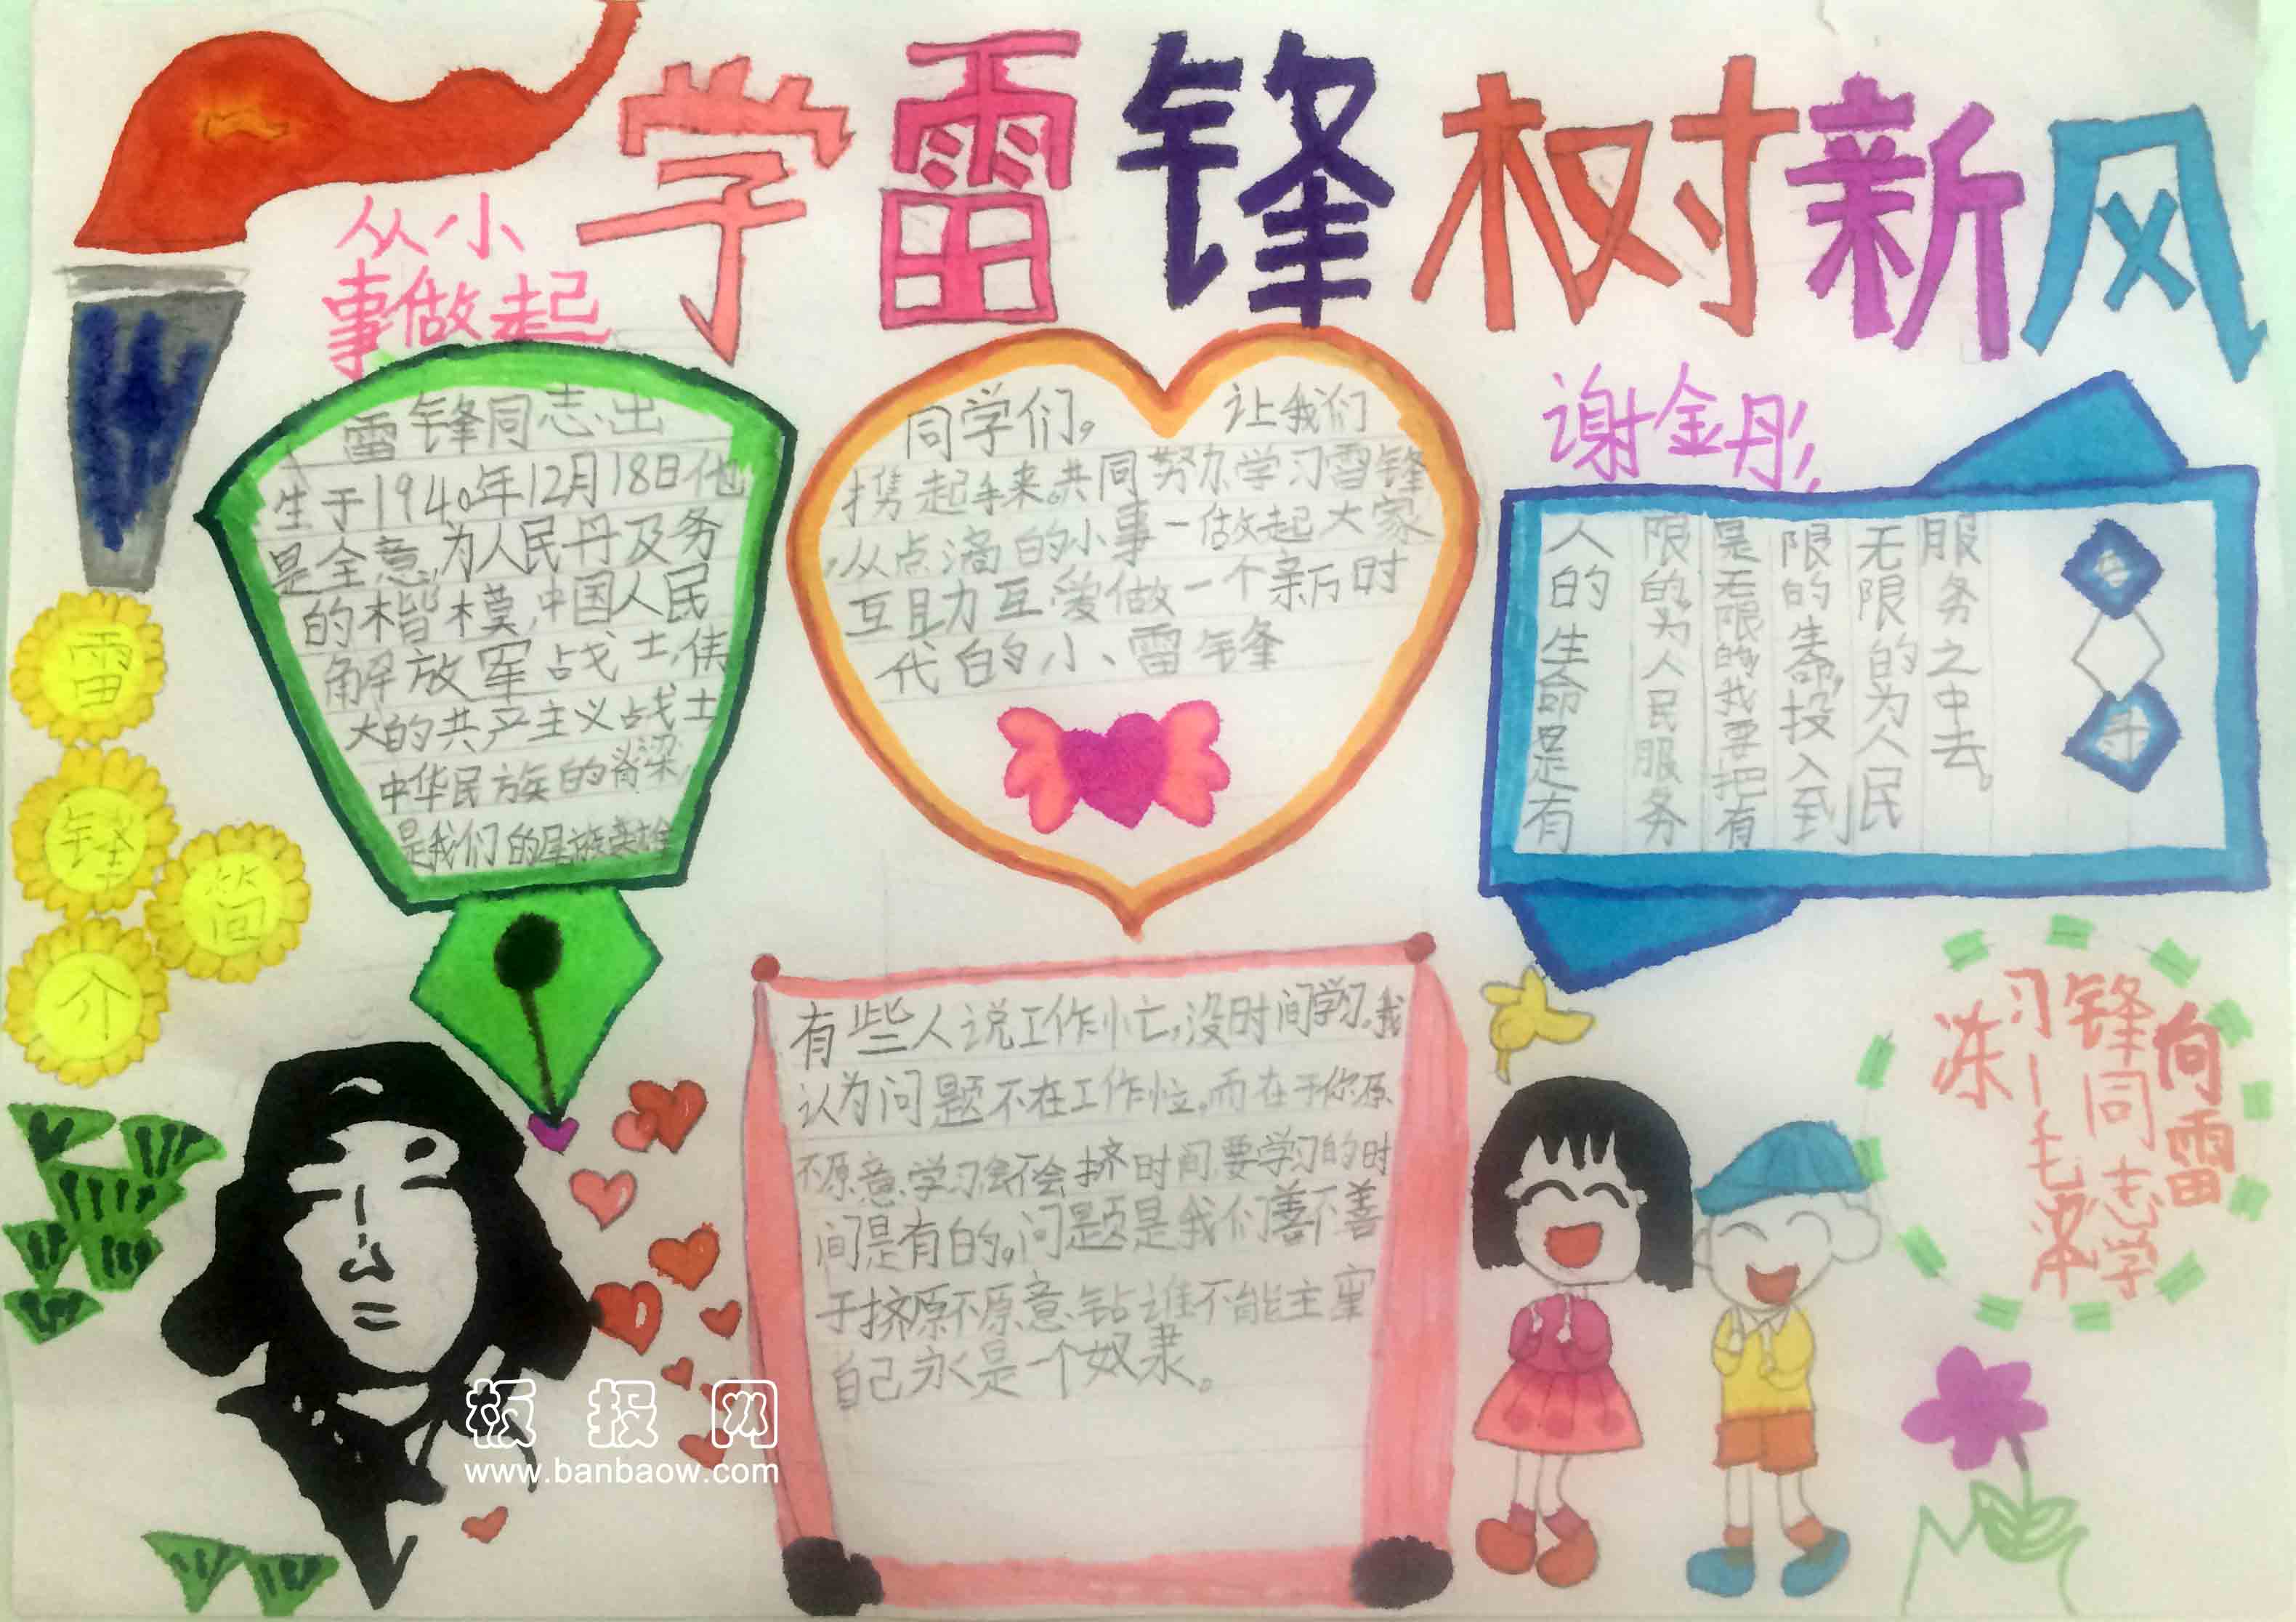 学雷锋树新风
从小
事做起
谢金彤
雷锋同志出
生于1940年12月18日他
是全意,为人民丹及务
的楷模,中国人民
解放军战士,伟
大的共产主义战士
中华民族的脊梁,
是我们的民族英雄
同学们。 让我们
携起手来。共同努力学习雷锋
从点滴的小事一做起大家
互助互爱做一个新万时
代的小、雷锋
人的生命是有
限的,为人民服务
是无限的,我要把有
限的生命,投入到
无限的为人民
服务之中去。
雷
锋
简
介
有些人说工作忙,没时间学习,我
认为问题不在工作忙。而在于你原
不原意,学习会不会挤时间,要学习的时
间是有的。问题是我们善不善
于挤原不原意钻谁不能主宰
自己永是一个奴隶。
向雷
锋同志学
习一毛泽
东
板报网
www.banbaow.com